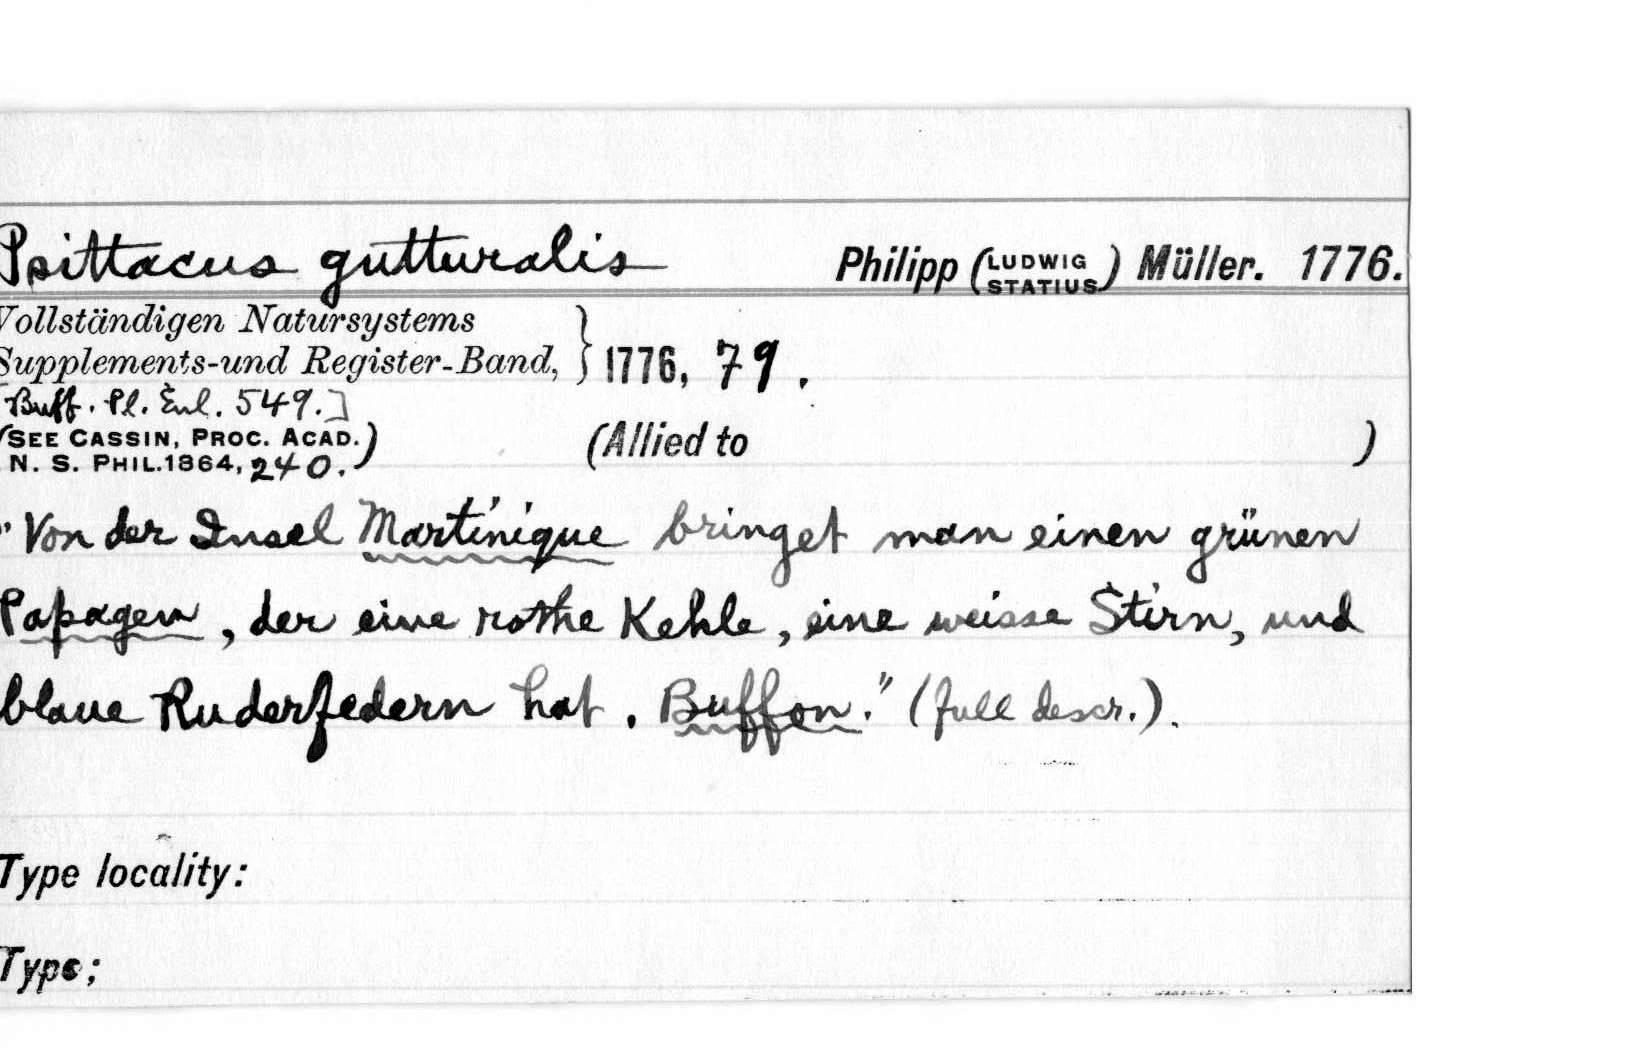 Psittacus gutturalis Philipp (LUDWIG STATIUS) Müller. 1776.
Vollständigen Natursystems
Supplements-und Register-Band, } 1776, 79.
[Buff. Pl. Enl. 549.]
(SEE CASSIN, PROC. ACAD.
N. S. PHIL.1864, 240.) (Allied to )
"Von der Insel Martinique bringet man einen grünen
Papagen, der eine rothe Kehle, eine weisse Stirn, und
blaue Ruderfedern hat. Buffon." (full descr.).
Type locality:
Type;